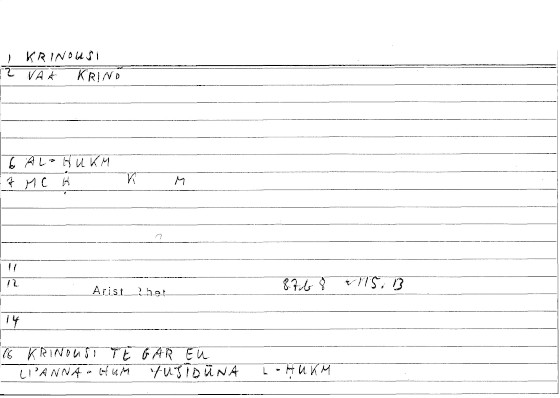 1 KRINOUSI
2 VAK KRINŌ
6 AL-ḤUKM
7 MC Ḥ K M
11
12 Arist Rhet 87b8 115.13
14
16 KRINOUSI TE GAR EU
LI'ANNA-HUM YUǦĪDŪNA L-ḤUKM